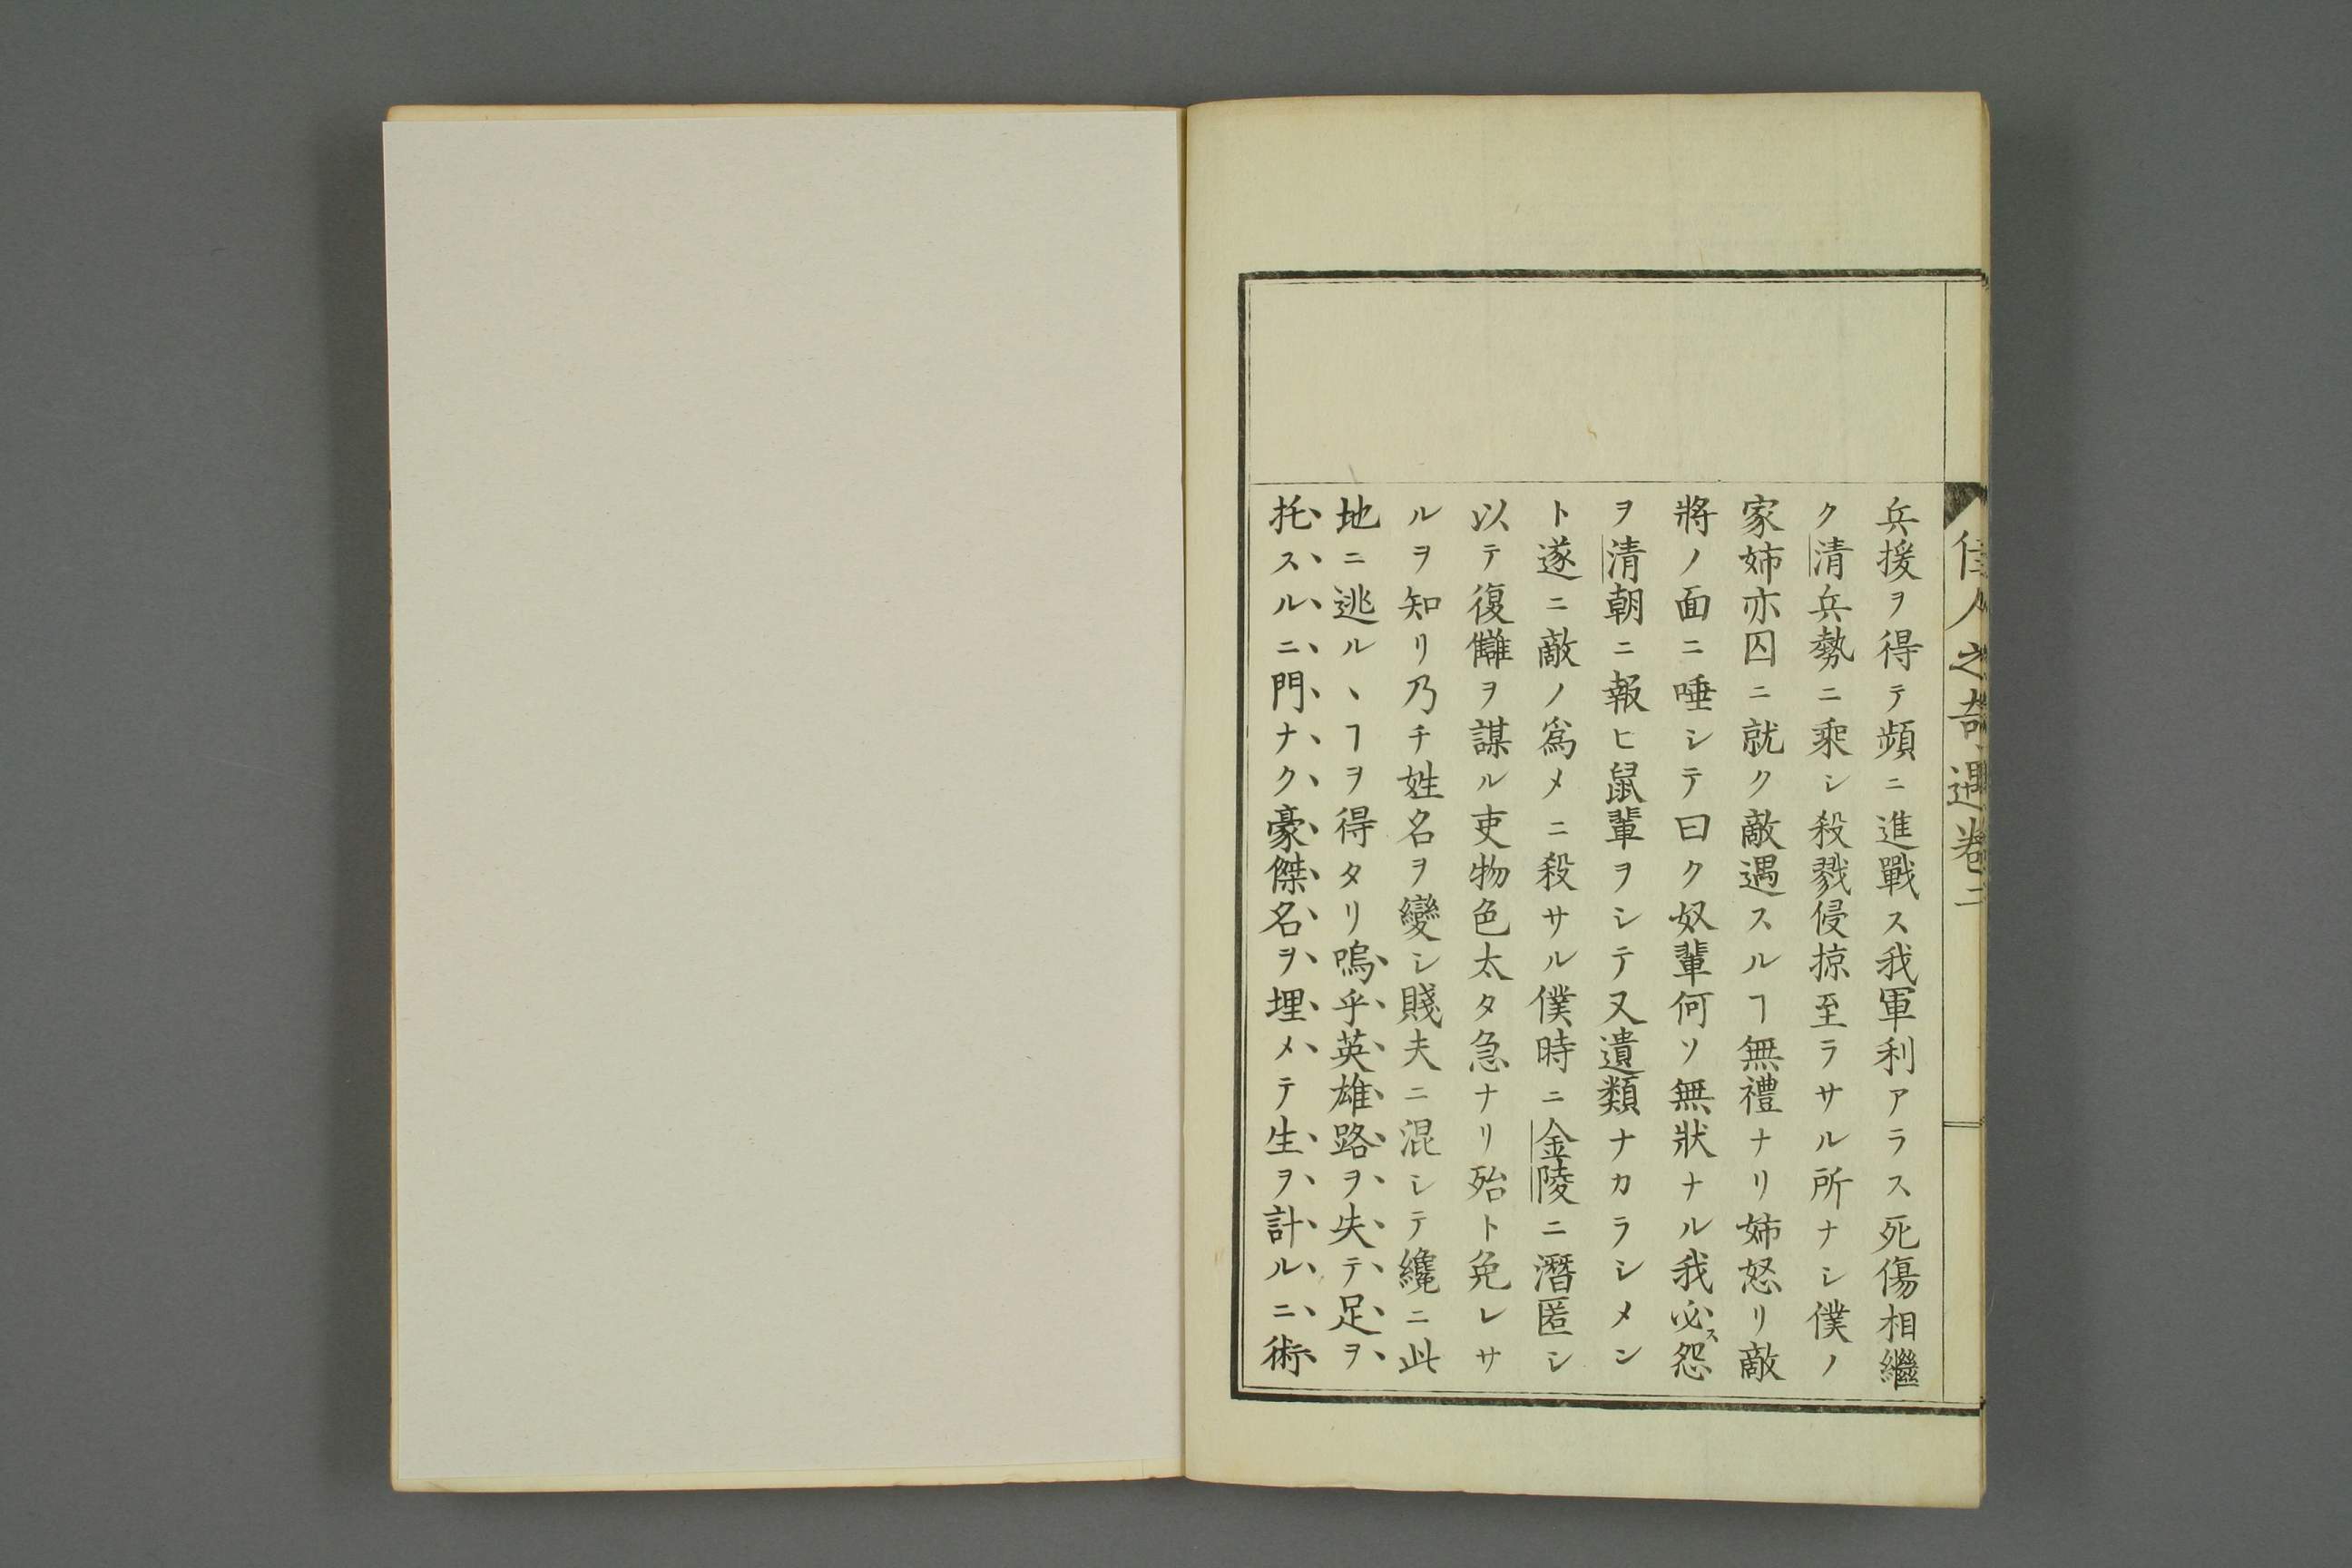 佳人之奇遇卷二
兵援ヲ得テ頻ニ進戰ス我軍利アラス死傷相繼
ク清兵勢ニ乘シ殺戮侵掠至ラサル所ナシ僕ノ
家姉亦囚ニ就ク敵遇スルヿ無禮ナリ姉怒リ敵
將ノ面ニ唾シテ曰ク奴輩何ソ無狀ナル我必ス怨
ヲ清朝ニ報ヒ鼠輩ヲシテ又遺類ナカラシメン
ト遂ニ敵ノ爲メニ殺サル僕時ニ金陵ニ潛匿シ
以テ復讎ヲ謀ル吏物色太タ急ナリ殆ト免レサ
ルヲ知リ乃チ姓名ヲ變シ賤夫ニ混シテ纔ニ此
地ニ逃ルヽヿヲ得タリ嗚乎英雄路ヲ失テ足ヲ
托スルニ門ナク豪傑名ヲ埋メテ生ヲ計ルニ術